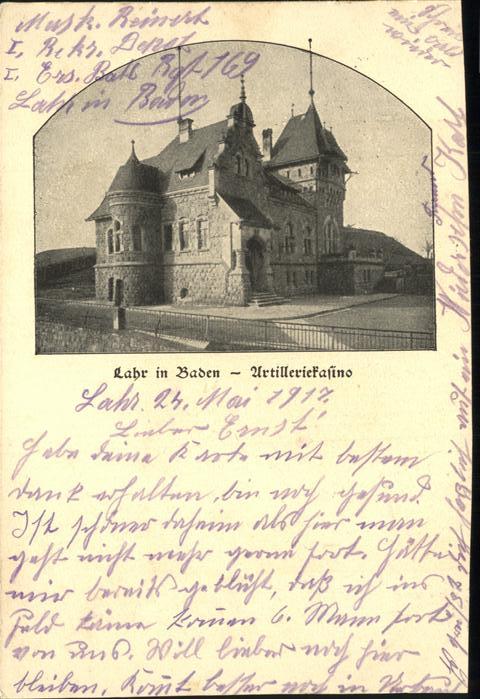 Musk. Reinert
I. Rekr. Depot
I. Ers. Batl. Rgt. 169
Lahr in Baden
wieder
Lahr in Baden – Artilleriekasino
Lahr. 24. Mai 1917.
Lieber Ernst!
Habe deine Karte mit bestem
dank erhalten, bin noch gesund.
Ist schöner daheim als hier man
geht nicht mehr gerne fort. Hätte
mir bereits geblüht, daß ich ins
Feld käme kamen 6. Mann fort
von uns. Will lieber noch hier
bleiben. Kommt besser noch in
Wiedersehn Karl